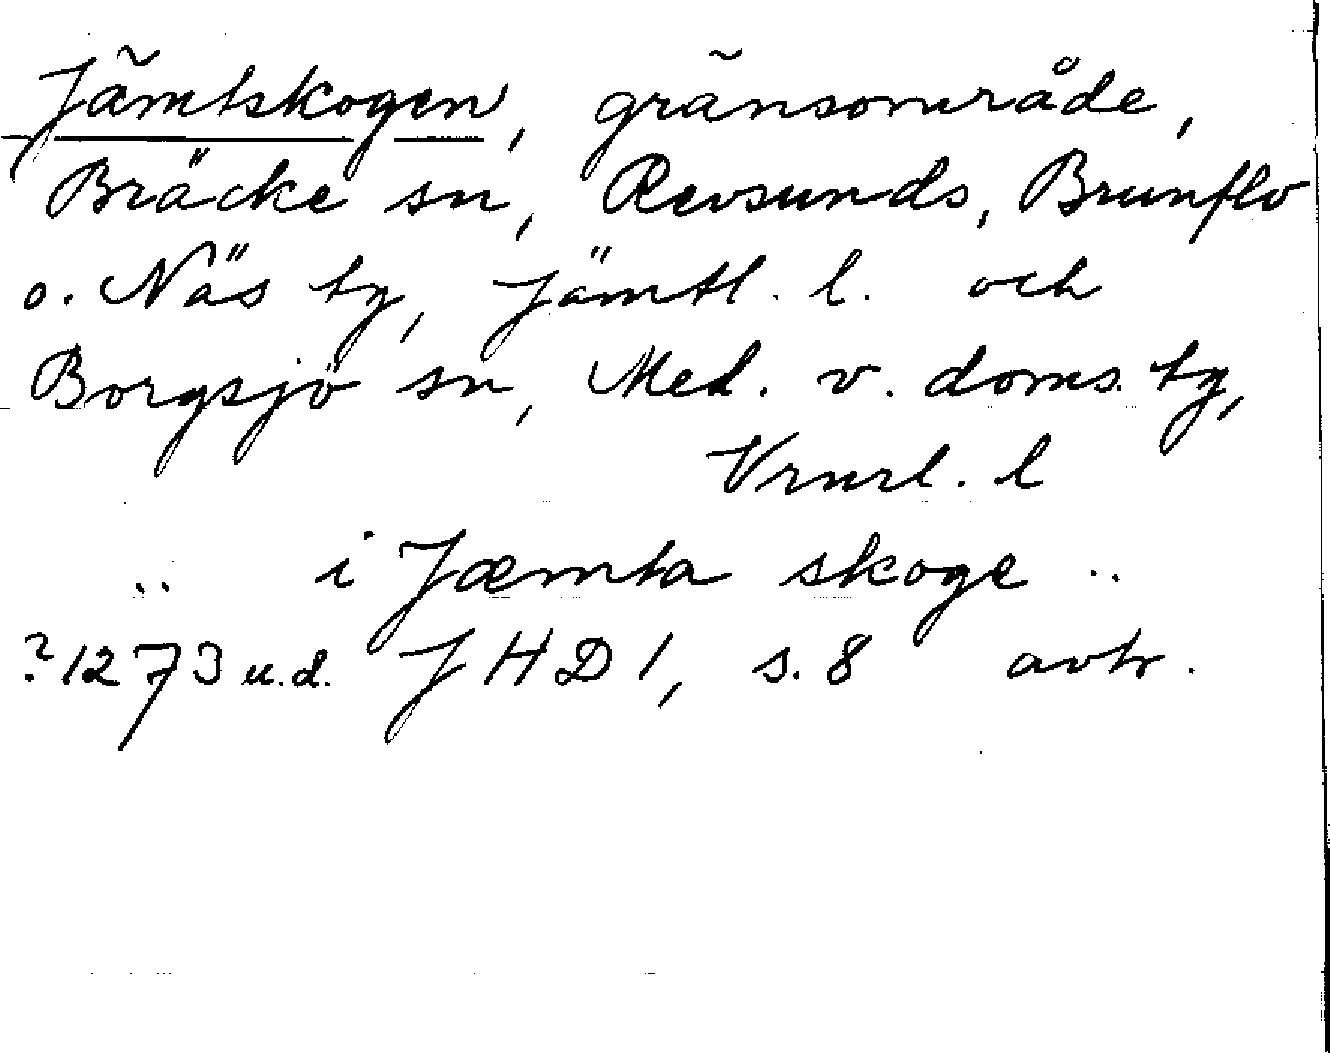 Jämtskogen, gränsområde,
Bräcke sn, Revsunds, Brunflo
o. Näs tg, Jämtl. l. och
Borgsjö sn, Med. v. doms. tg,
Vrnrl. l
.. i Jæmta skoge ..
? 1273 u.d. JHD 1, s. 8 avtr.